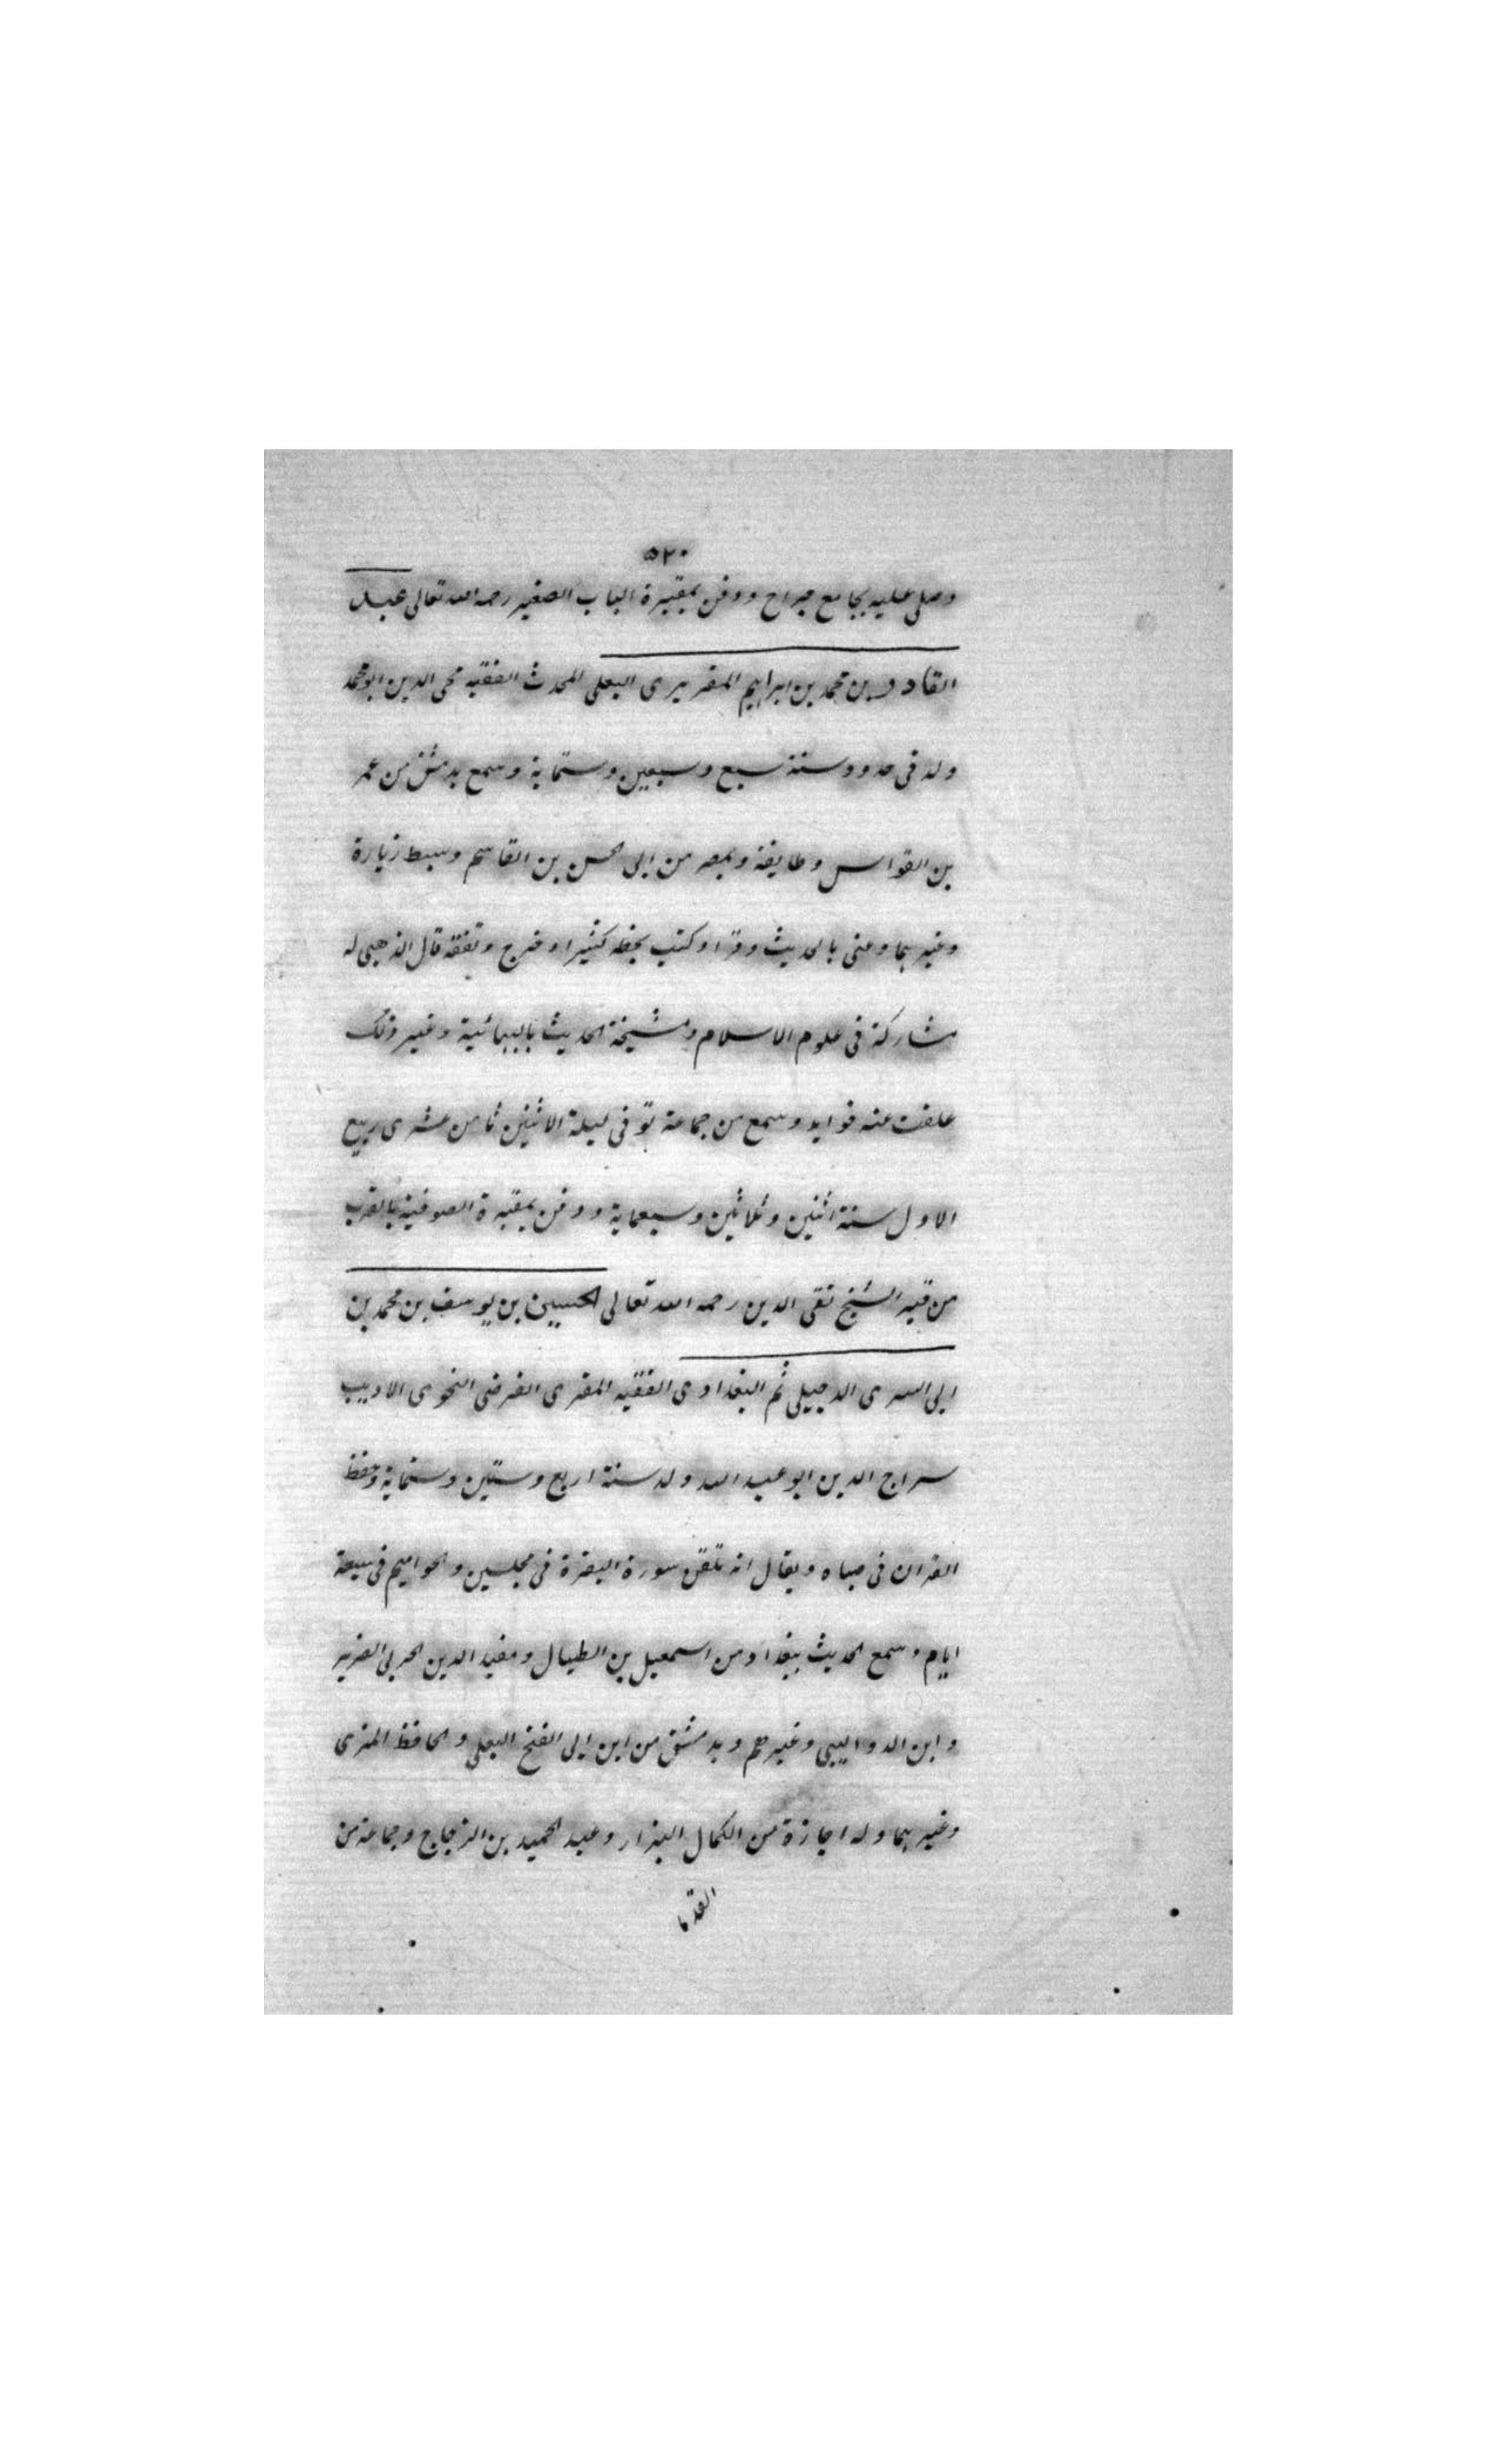 ٥٢٠
وصلى عليه بجامع جراح ودفن بمقبرة الباب الصغير رحمه الله تعالى عبد
القادر بن محمد بن ابراهيم المقريزى البعلى المحدث الفقيه محى الدين ابو محمد
ولد فى حدود سنة سبع وسبعين وستماية وسمع بدمشق من عمر
بن القواس وطايفة وبمصر من ابى الحسن بن القاسم وسبط زيارة
وغيرهما وعنى بالحديث وقرا وكتب بخطه كثيرا وخرج وتفقه قال الذهبى له
مشاركة فى علوم الاسلام ومشيخة الحديث بالبهائية وغير ذلك
علقت عنه فوايد وسمع من جماعة توفى ليلة الاثنين ثامن عشرى ربيع
الاول سنة اثنين وثلاثين وسبعماية ودفن بمقبرة الصوفية بالقرب
من قبر الشيخ تقى الدين رحمه الله تعالى الحسين بن يوسف بن محمد بن
ابى السرى الدجيلى ثم البغدادى الفقيه المقرى الفرضى النحوى الاديب
سراج الدين ابو عبد الله ولد سنة اربع وستين وستماية وحفظ
القران فى صباه ويقال انه تلقن سورة البقرة فى مجلسين والحواميم فى سبعة
ايام وسمع الحديث ببغداد من اسمعيل بن الطبال ومفيد الدين الحربى الضرير
وابن الدواليبى وغيرهم وبدمشق من ابن ابى الفتح البعلى والحافظ المزى
وغيرهما وله اجازة من الكمال البزار وعبد الحميد بن الزجاج وجماعة من
القدما